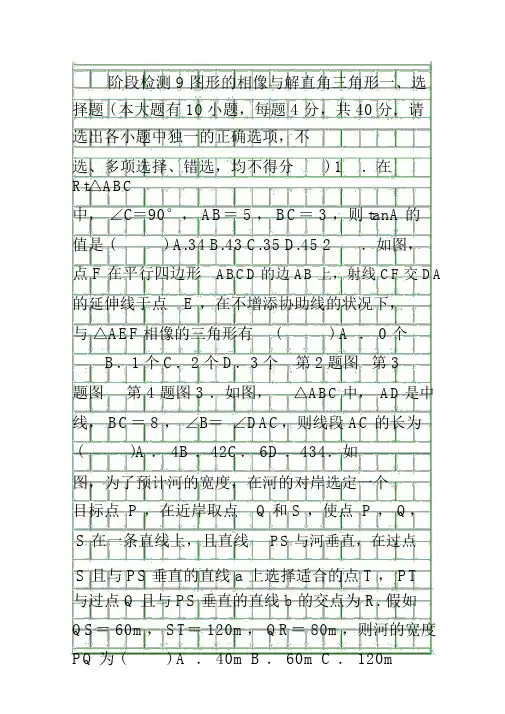 阶段检测9图形的相像与解直角三角形一、选
择题(本大题有10小题，每题4分，共40分．请
选出各小题中独一的正确选项，不
选、多项选择、错选，均不得分 )1 ．在
Rt△ABC
中， ∠C＝90°，AB＝5，BC＝3，则tanA的
值是( )A.34 B.43 C.35 D.45 2 ．如图，
点F在平行四边形 ABCD的边AB上，射线CF交DA
的延伸线于点 E，在不增添协助线的状况下，
与△AEF相像的三角形有 ( )A ．0个
B．1个C．2个D．3个 第2题图 第3
题图 第4题图3．如图， △ABC中，AD是中
线，BC＝8，∠B＝ ∠DAC，则线段AC的长为
( )A．4B．42C．6D．434．如
图，为了预计河的宽度，在河的对岸选定一个
目标点 P，在近岸取点 Q和S，使点 P，Q，
S在一条直线上，且直线 PS与河垂直，在过点
S且与PS垂直的直线a上选择适合的点T，PT
与过点Q且与PS垂直的直线b的交点为R.假如
QS＝60m，ST＝120m，QR＝80m，则河的宽度
PQ为( )A ．40m B．60m C．120m